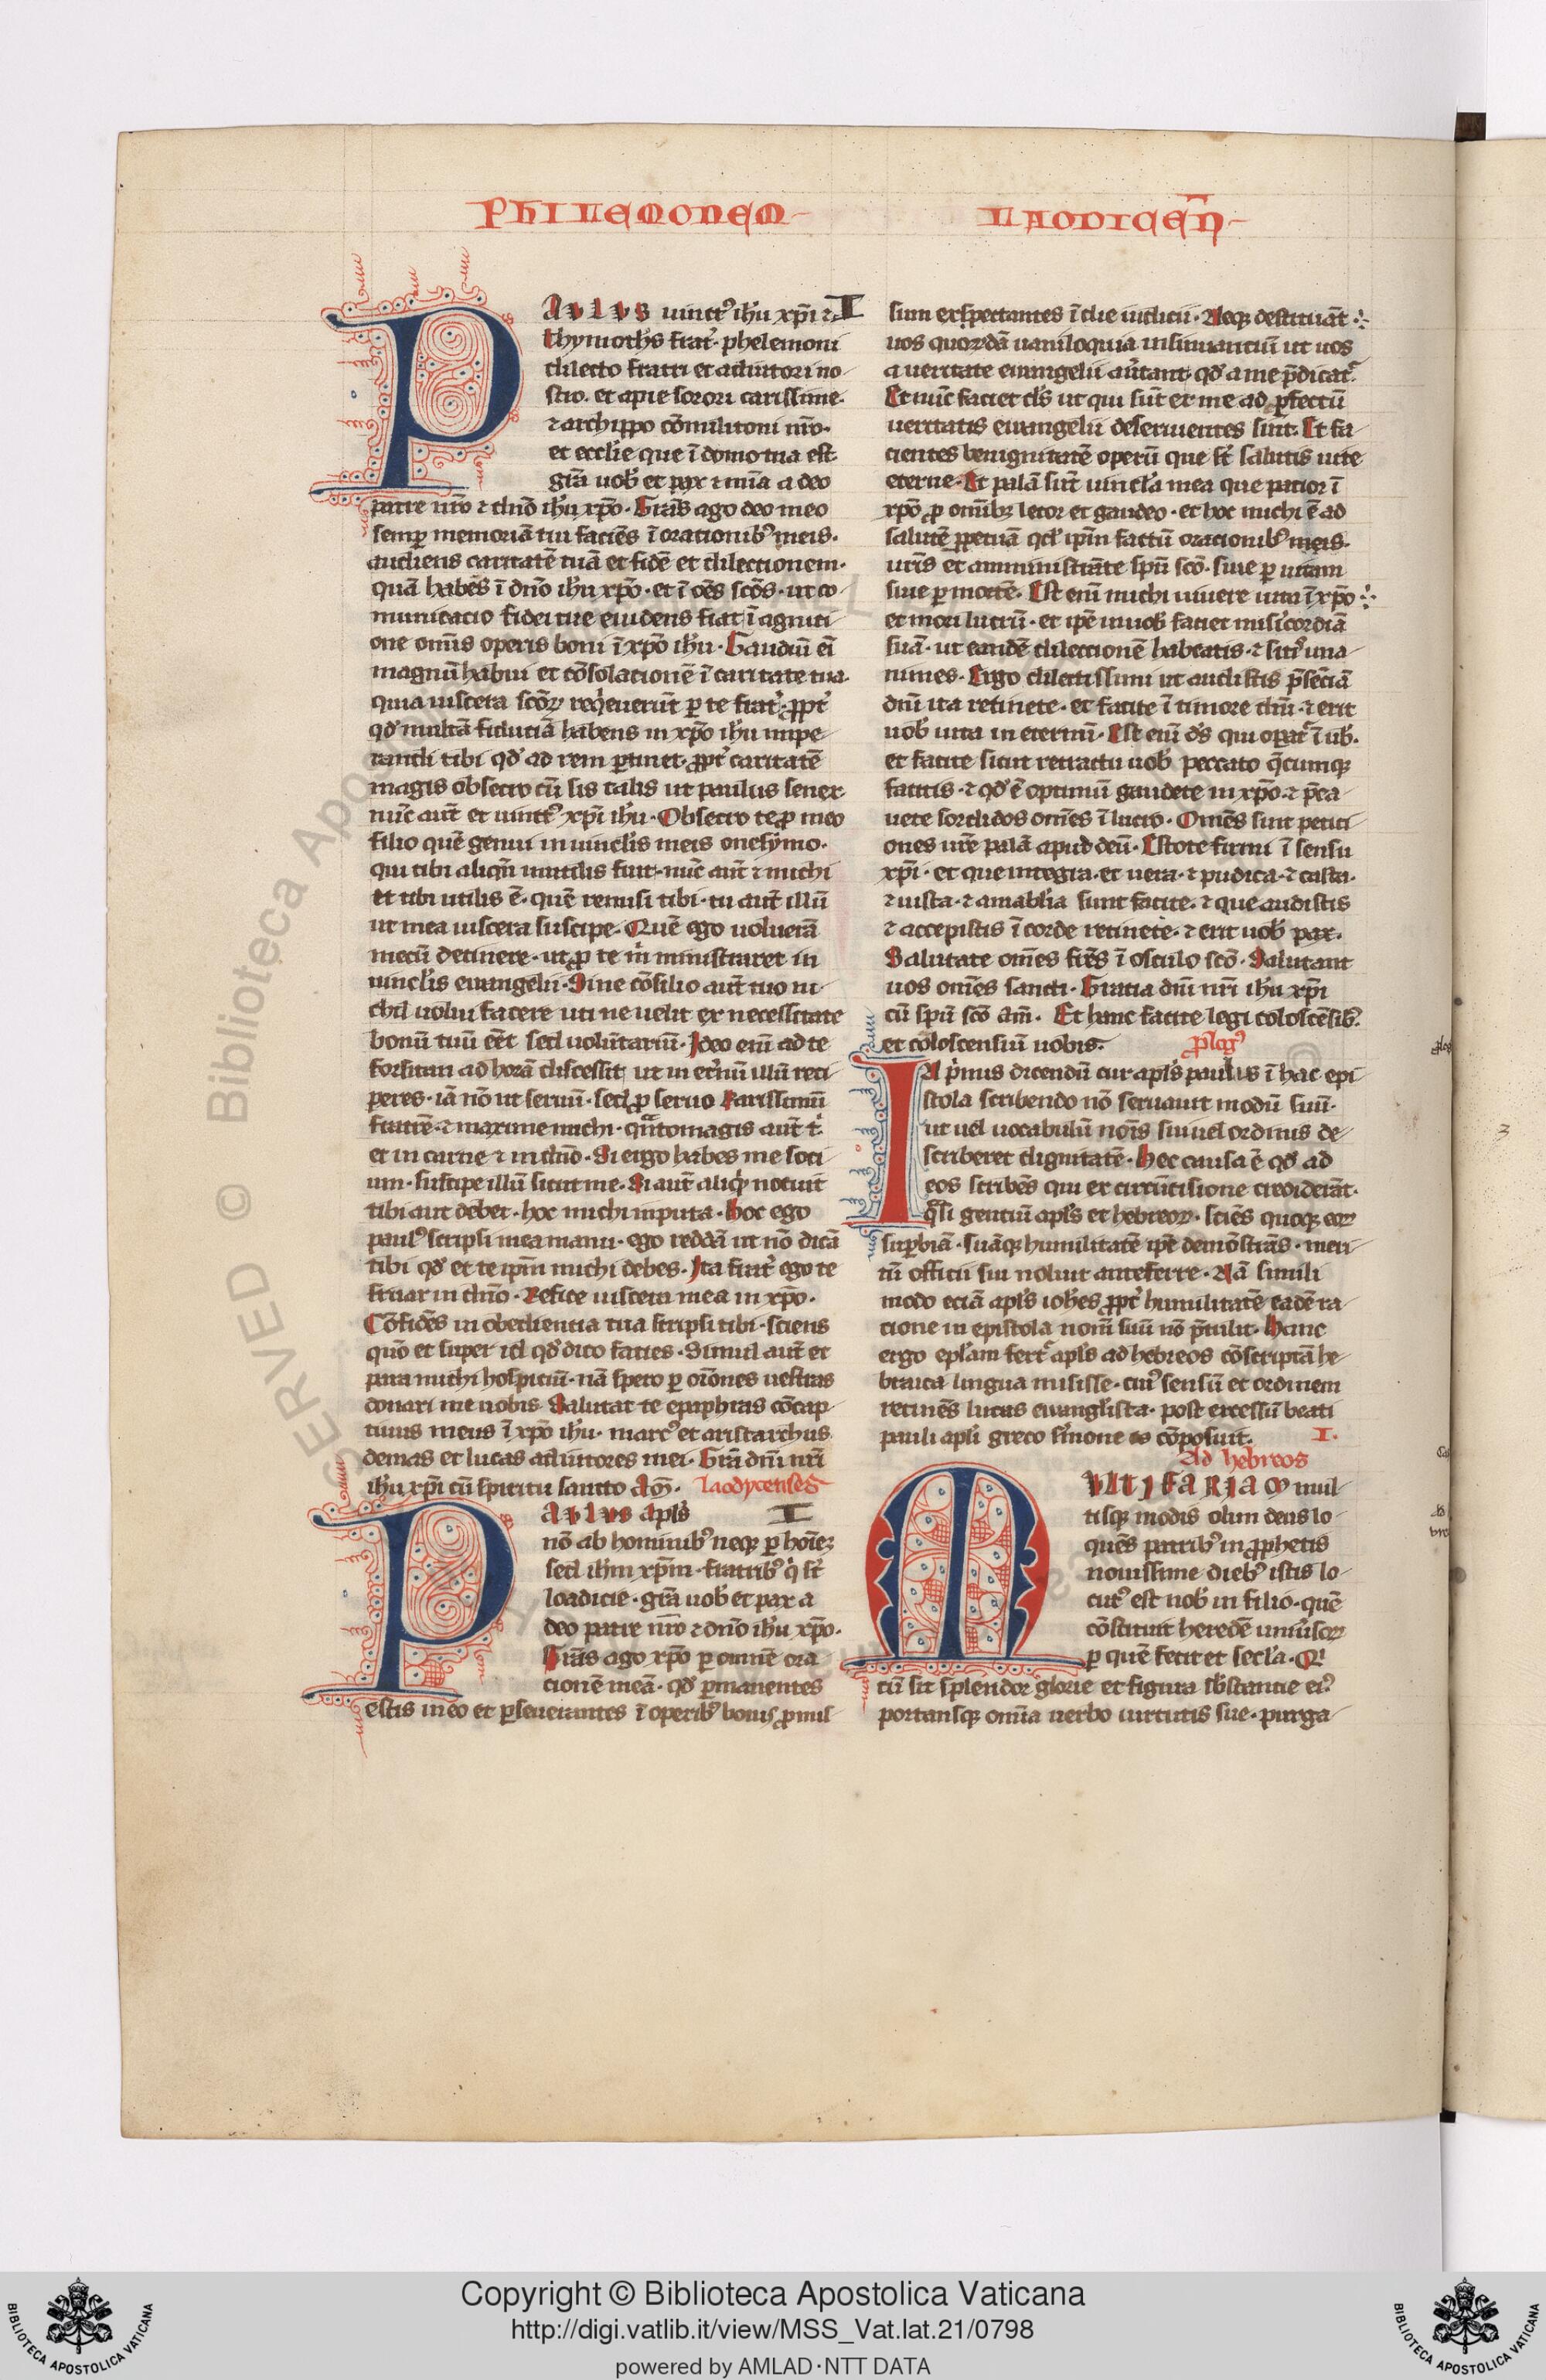 PhILEMONEM
LAODICEN̄
PAVLVS uinctꝰ ih̄u xp̄i ⁊ I
thymoth̓s frat̓. phelemoni
dilecto fratri et adiutori no-
stro. et apie sorori carissime.
⁊ archippo cōmilitoni nr̄o.
et ecclīe que ī domo tua est
grā uob̓ et pax ⁊ mīa a deo
patre nr̄o ⁊ dn̄o ih̄u xp̄o. Grās ago deo meo
semꝑ memoriā tui faciēs ī orationibꝰ meis.
audiens caritatē tuā et fidē et dilectionem.
quā habēs ī dn̄o ih̄u xp̄o. et ī oēs sc̄os. ut co-
municatio fidei tue euidens fiat ī agniti-
one omīs operis boni ī xp̄o ih̄u. Gaudiū ei̅
magnū habui et cōsolacionē ī caritate tua.
quia uiscera sc̄oꝝ req̓euerūt ꝑ te frat̓. ꝓpt̓
qd̓ multā fiduciā habens in xp̄o ih̄u impe-
randi tibi qd̓ ad rem ꝑtinet. ꝓpt̓ caritatē
magis obsecro cū sis talis ut paulus senex
nūc aut̄ et uinctꝰ xp̄i ih̄u. Obsecro te ꝓ meo
filio quē genui in uinclis meis onesymo.
qui tibi aliqn̄ inutilis fuit. nūc aut̄ ⁊ michi
et tibi utilis ē. quē remisi tibi. tu aut̄ illū
ut mea uiscera suscipe. Quē ego uolueram
mecū detinere. ut ꝓ te m̓ ministraret in
uinclis euangelii. Sine cōsilio aut̄ tuo ni-
chil uolui facere uti ne uelut ex necessitate
bonū tuū eēt sed uolūtariū. Ideo eni̅ ad te
forsitan ad horā discessit, ut in et̓nū illū reci-
peres. iā nō ut seruū. sed ꝓ seruo karissimū
fratrē. ⁊ maxime michi. qn̄tomagis aut̄ t̓
et in carne ⁊ in dn̄o. Si ergo habes me soci-
um. suscipe illū sicut me. Si aut̄ aliqd̓ nocuit
tibi aut debet. hoc michi inputa. Hoc ego
paulꝰ scripsi mea manu. ego reddā ut nō dicā
tibi qd̓ et te ip̄m michi debes. Ita frat̓ ego te
fruar in dn̄o. Refice uiscera mea in xp̄o.
Cōfidēs in obedientia tua scripsi tibi. sciens
qn̄o et super id qd̓ dico facies. Simul aut̄ et
para michi hospiciū. nā spero ꝑ orōnes uestras
donari me uobis. Salutat te epaphras cōcap-
tiuus meus ī xp̄o ih̄u. marcꝰ et aristarchus
demas et lucas adiutores mei. Grā dn̄i nr̄i
ih̄u xp̄i cū spiritu sancto Am̄. laodycenses
PAVLVS apl̓s I
nō ab hominibꝰ neqꝫ ꝑ hoīeꝫ
sed ih̄m xp̄m. fratribꝰ q̓ st̄
loadicie. grā uob̓ et pax a
deo patre nr̄o ⁊ dn̄o ih̄u xp̄o.
Grās ago xp̄o ꝑ omnē ora-
cionē meā. qd̓ ꝑmanentes
estis in eo et ꝑseuerantes ī operibꝰ bonis ꝓmis-
sum exspectantes ī die iudicii. Neqꝫ destituāt
uos quorꝰdā uaniloquia insinuantiū ut uos
a ueritate euangelii au̓tant qd̓ a me p̄dicat̓.
Et nūc faciet d̓s ut qui sūt ex me ad ꝓfectū
ueritatis ewangelii deseruientes sint. Et fa-
cientes benignitatē operū que st̄ salutis uite
eterne. Et palā sūt uincl̓a mea que patior ī
xp̄o ꝓ omībꝫ letor et gaudeo. et hoc michi ē ad
salutē ꝓpetuā qd̓ ip̄m factū oracionibꝰ meis.
ur̄is et amministrāte spū sc̄o. siue ꝑ uitam
siue ꝑ mortē. Est enī michi uiuere uita ī xp̄o
et mori lucrū. et ip̄e in uob̓ faciet misi̓cordiā
suā. ut eandē dilectionē habeatis. ⁊ sitꝰ una-
nimes. Ergo dilectissimi ut audistis p̄senciā
dn̄i ita retinete. et facite ī timore dn̄i. ⁊ erit
uob̓ uita in eternū. Est eni̅ d̓s qui oꝑat̓ ī ub̓.
et facite sicut retractu uob̓ peccato q̄cumqꝫ
facitis. ⁊ qd̓ ē optimū gaudete in xp̄o. ⁊ p̄ca-
uete sordidos om̄s ī lucro. Omēs sint petici-
ones ur̄e palā apud deū. Estote firmi ī sensu
xp̄i. et que integra. et uera. ⁊ pudica. ⁊ casta.
⁊ iusta. ⁊ amabl̓ia sunt facite. ⁊ que audistis
⁊ accepistis ī corde retinete. ⁊ erit uob̓ pax.
Salutate om̄es fr̄es ī osculo sc̄o. Salutant
uos om̄es sancti. Gratia dn̄i nr̄i ih̄u xp̄i
cū spū sc̄o am̄. Et hanc facite legi colosc̄esibꝰ.
et colosensiū uobis. ꝓlogꝰ
IN p̓mis dicendū cur apl̓s paulus ī hac epi-
stola scribendo nō seruauit modū suū.
ut uel uocabulū noīs sui uel ordinis de-
scriberet dignitatē. Hec causa ē qd̓ ad
eos scribēs qui ex circūcisione crediderāt.
q̄si gentiū apl̓s et hebreoꝝ. sciēs quoqꝫ eoꝝ
suꝑbiā. suāqꝫ humilitatē ip̄e demōstrās. meri-
tū officii sui noluit anteferre. Nā simili
modo eciā apl̓s ioh̓es ꝓpt̓ humilitatē eadē ra-
cione in epistola nom̄ suū nō p̄tulit. Hanc
ergo epl̓am fert̓ apl̓s ad hebreos cōscriptā he-
braica lingua misisse. cuiꝰ sensū et ordinem
retinēs lucas ewangl̓ista. post excessū beati
pauli apl̓i greco s̓mone cōposuit. I.
Ad hebreos
MVLTIFARIAM mul-
tisqꝫ modis olim deus lo-
quēs patribꝰ in ꝓphetis
nouissime diebꝰ istis lo-
cutꝰ est nob̓ in filio. quē
cōstituit heredē uniu̓soꝝ
ꝑ quē fecit et secl̓a. Qi
cū sit splendor glorie et figura sb̓stantie eiꝰ
portansqꝫ omīa uerbo uirtutis sue. purga-
Copyright © Biblioteca Apostolica Vaticana
http://digi.vatlib.it/view/MSS_Vat.lat.21/0798
powered by AMLAD·NTT DATA
BIBLIOTECA APOSTOLICA VATICANA
BIBLIOTECA APOSTOLICA VATICANA